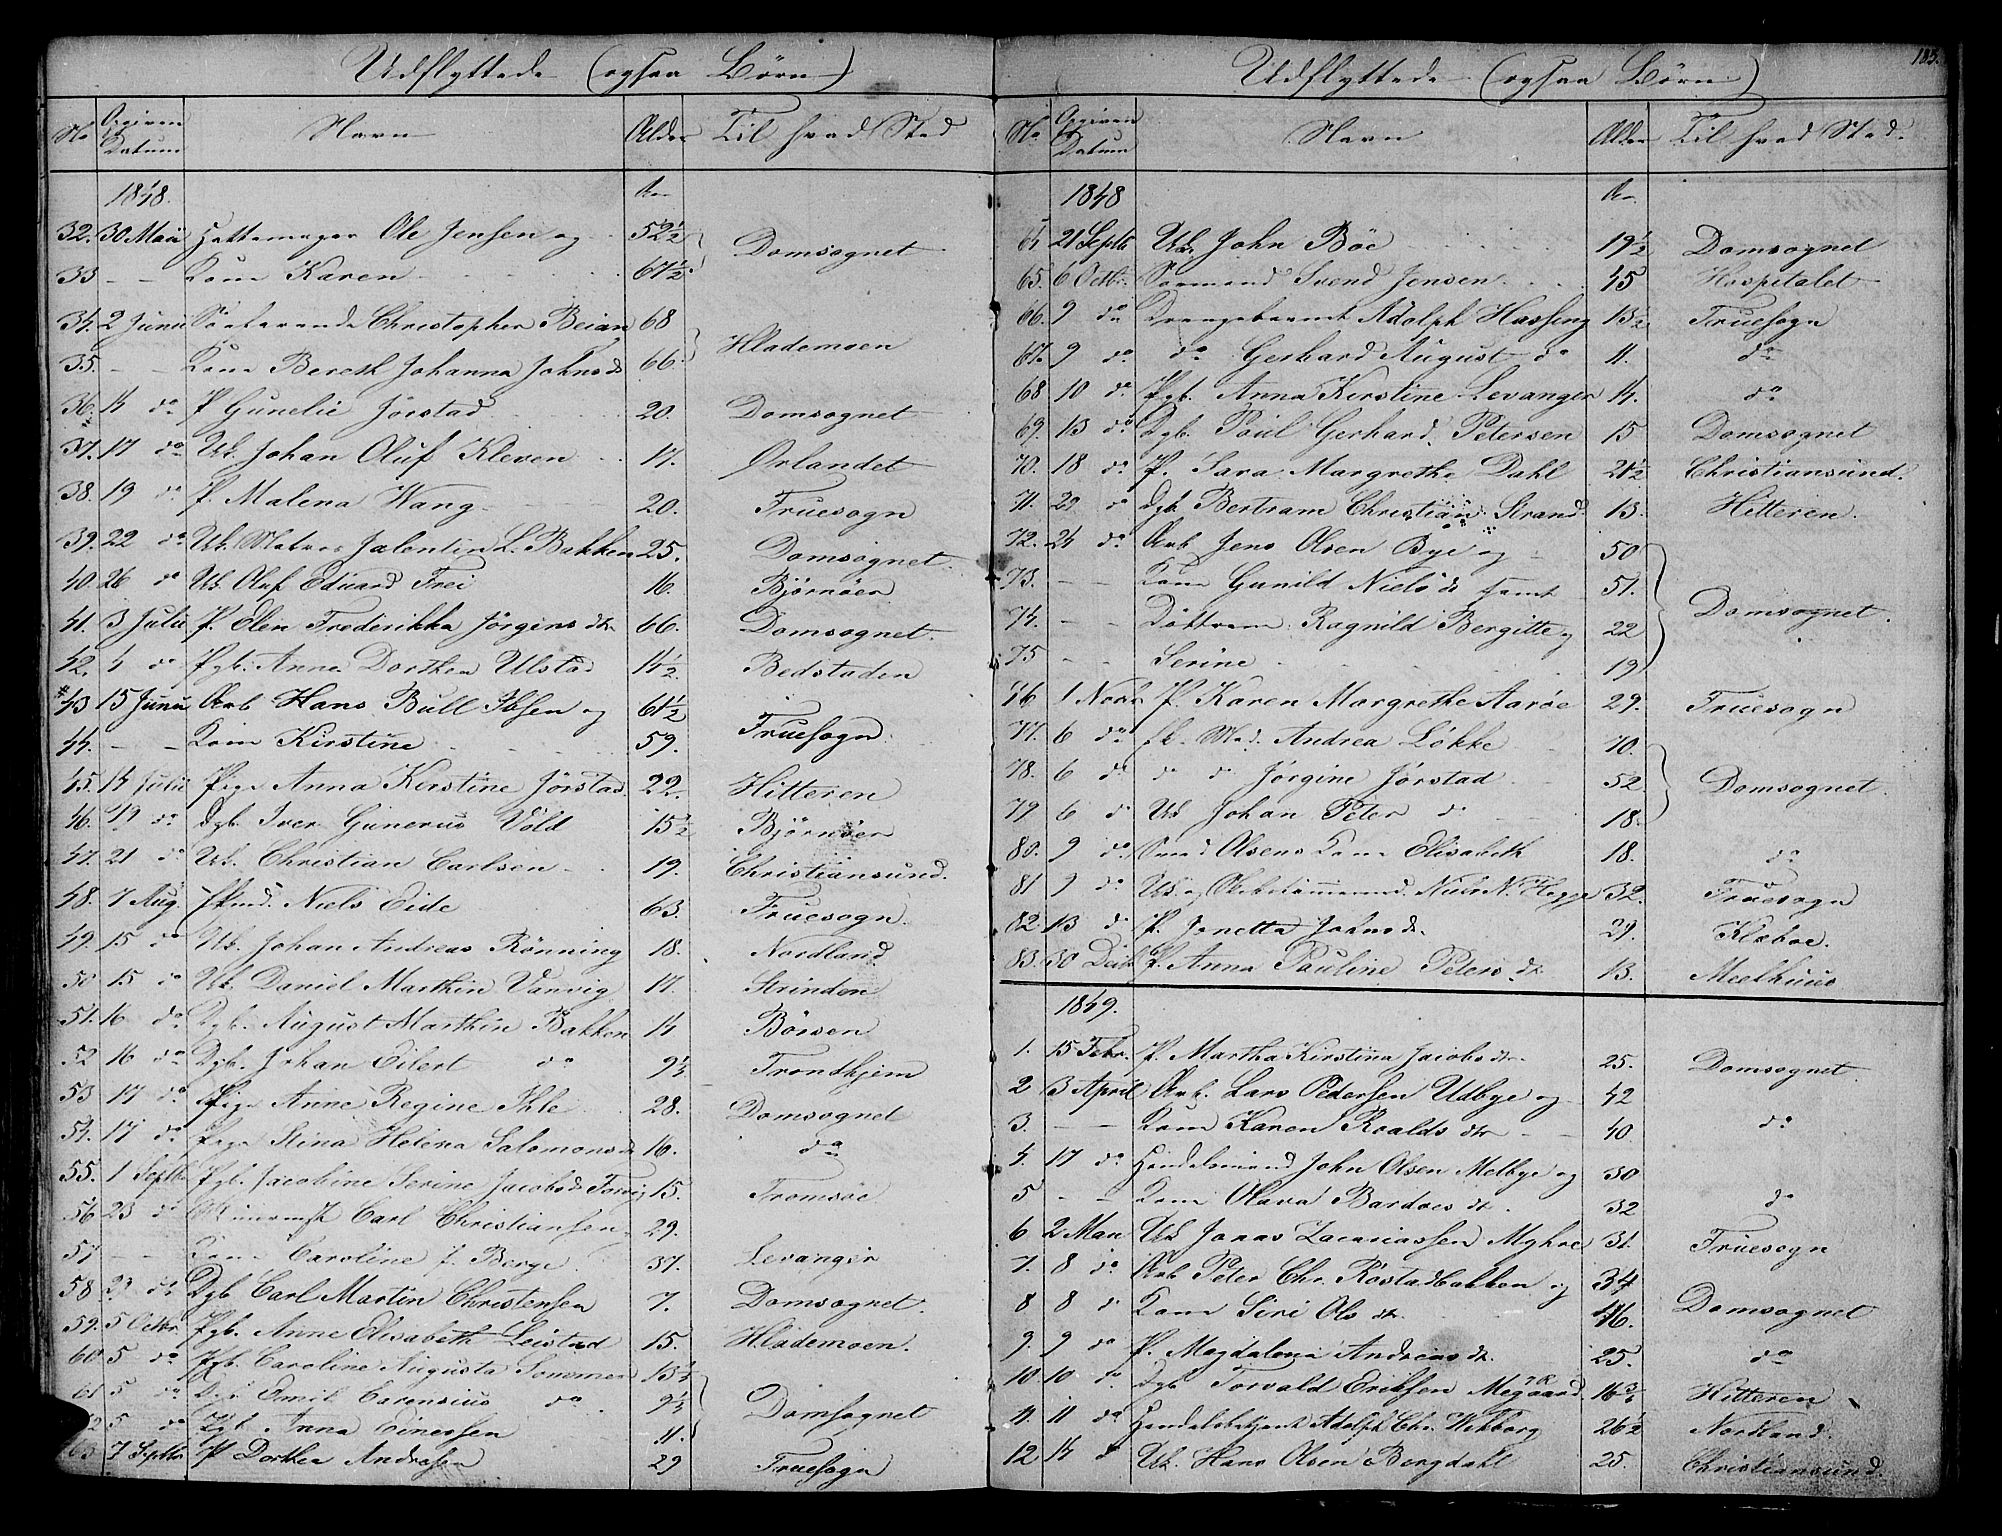 Udflyttede (ogsaa Børn)
No Opgiven Datum Navn Alder Til hvad Sted
1848. Aar
32. 30 Maii Hattemager Ole Jensen og 52½ Domsognet
33 - - Kone Karen 67½
34. 2 Junii Christopher Beian 68 Hlademoen
35. - - Kone Johanna Johnsd 66.
36. 14 do P Gunelie Jørstad 20. Domsognet
37. 17 do Uk Johan Oluf Kleven 17. Ørlandet
38. 19 do P. Malena Wang 20. Fruesogn
39. 22 do Uk. L. Bakken 25. Domsognet.
40. 26 do Uk Oluf Eduard Frei 16. Bjørnøer
41. 3 Julii P. Elen Frederikka Jörgensdtr 66. Domsognet.
42. 4 do Pgb. Anne Dorthea Ulstad 14½ Bedstaden
43 15 Junii Arb Hans Bull Ibsen og 61½ Fruesogn
44. - - Kone Kirstine 59.
45. 14 Julii Pige Anna Kirstine Jörstad 22. Hitteren
46. 19 do Dgb. Iver Gunerus Vold 15½ Bjørnøer
47. 21 do Uk. Christian Carlsen 19. Christiansund.
48. 7 Aug. Niels Eide 63. Fruesogn.
49. 15 do Uk. Johan Andreas Rönning 18. Nordland
50 15 do Uk. Daniel Marthin Vanvig 17. Strinden
51. 16 do Dgb. August Marthin Bakken 14 Börsen
52 16 do Dgb. Johan Eilert do 9½ Trondhjem
53 17 do Pige Anne Regine Ihle 28. Domsognet
54. 17 do Pige Stina Helena Salomonsd 16. do
55. 1 Septbr Pgb. Jacobine Serine Jacobsd Torvig 15. Tromsöe
56 23 do Carl Christiansen 29.
57 - - Kone Caroline f. Berge 37. Levanger
58 23 do Dgb Carl Martin Christensen 7. Domsognet.
59. 5 Octbr. Pgb. Anne Elisabeth Leistad 15. Hlademoen.
60 5 do Pgb. Caroline Augusta Sommer 13½ Domsognet
61 5 do Dgb Emil do 9½
62 5 do Pgb. Anna Einersen 11.
63 7 Septbr P Dorthea Andrasen 29 Fruesogn
Udflyttede (ogsaa Børn) 185.
No Opgiven Datum Navn Alder Til hvad Sted.
1848 Aar
21 Septb Uk. John Böe 19½ Domsognet
65. 6 Octbr Svend Jensen 45 Hospitalet
66. 9 do Drengebarnet Adolph Hassing 13½ Fruesogn
67. 9 do do Gerhard August do 11. do
68 10 do Pgb. Anna Kirstine Levanger 14. do
69. 13 do Dgb. Paul Gerhard Petersen 15 Domsognet
70. 18 do P. Sara Margrethe Dahl 21½ Christiansund.
71. 22 do Dgb Bertram Christian Strand 13. Hitteren.
72. 24 do Arb Jens Olsen Bye og 50 Domsognet.
73. - - Kone Gunild Nielsd samt 51.
74. - - Döttrene Ragnild Bergitte og 22
75 - - Serine 19
76 1 Novbr P. Karen Margrethe Aaröe 29. Fruesogn
77. 6 do Mad. Andrea Lökke 70. Domsognet.
78. 6 do do do Jörgine Jørstad 52.
79 6 do Uk Johan Peter do 18.
80. 9 do Olsens Kone Elisabeth 18. do
81 9 do Uk og Niels N. Hegge 32. Fruesogn
82. 13 do P. Janetta Johnsdtr. 29. Klæboe.
83. 30 P. Anna Pauline Petersdtr 13. Meelhuus
1849.
1. 15 Febr. P. Martha Kirstina Jacobsdtr. 25. Domsognet.
2 3 April Arb. Lars Pedersen Udbye og 42 do
3. - - Kone Karen Roaldsdtr 40.
4. 17 do Handelsmand John Olsen Melbye og 30 do
5 - - Kone Olava Bardoesdtr. 32
6 2 Mai Uk Jonas Zacariassen Myhre 31. Fruesogn
7. 8 do Arb Peter Chr. Röstadbakken og 34 Domsognet
8 8 do Kone Siri Olsdtr. 46.
9. 9 do P. Magdalena Andreasdtr. 25. do
10 10 do Dgb Torvald Eriksen Megaard 16½ Hitteren
11. 11 do Handelsbetjent Adolph Chr. Wikborg 26½ Nordland.
12 14 do Uk. Hans Olsen Bergdahl 25. Christiansund.